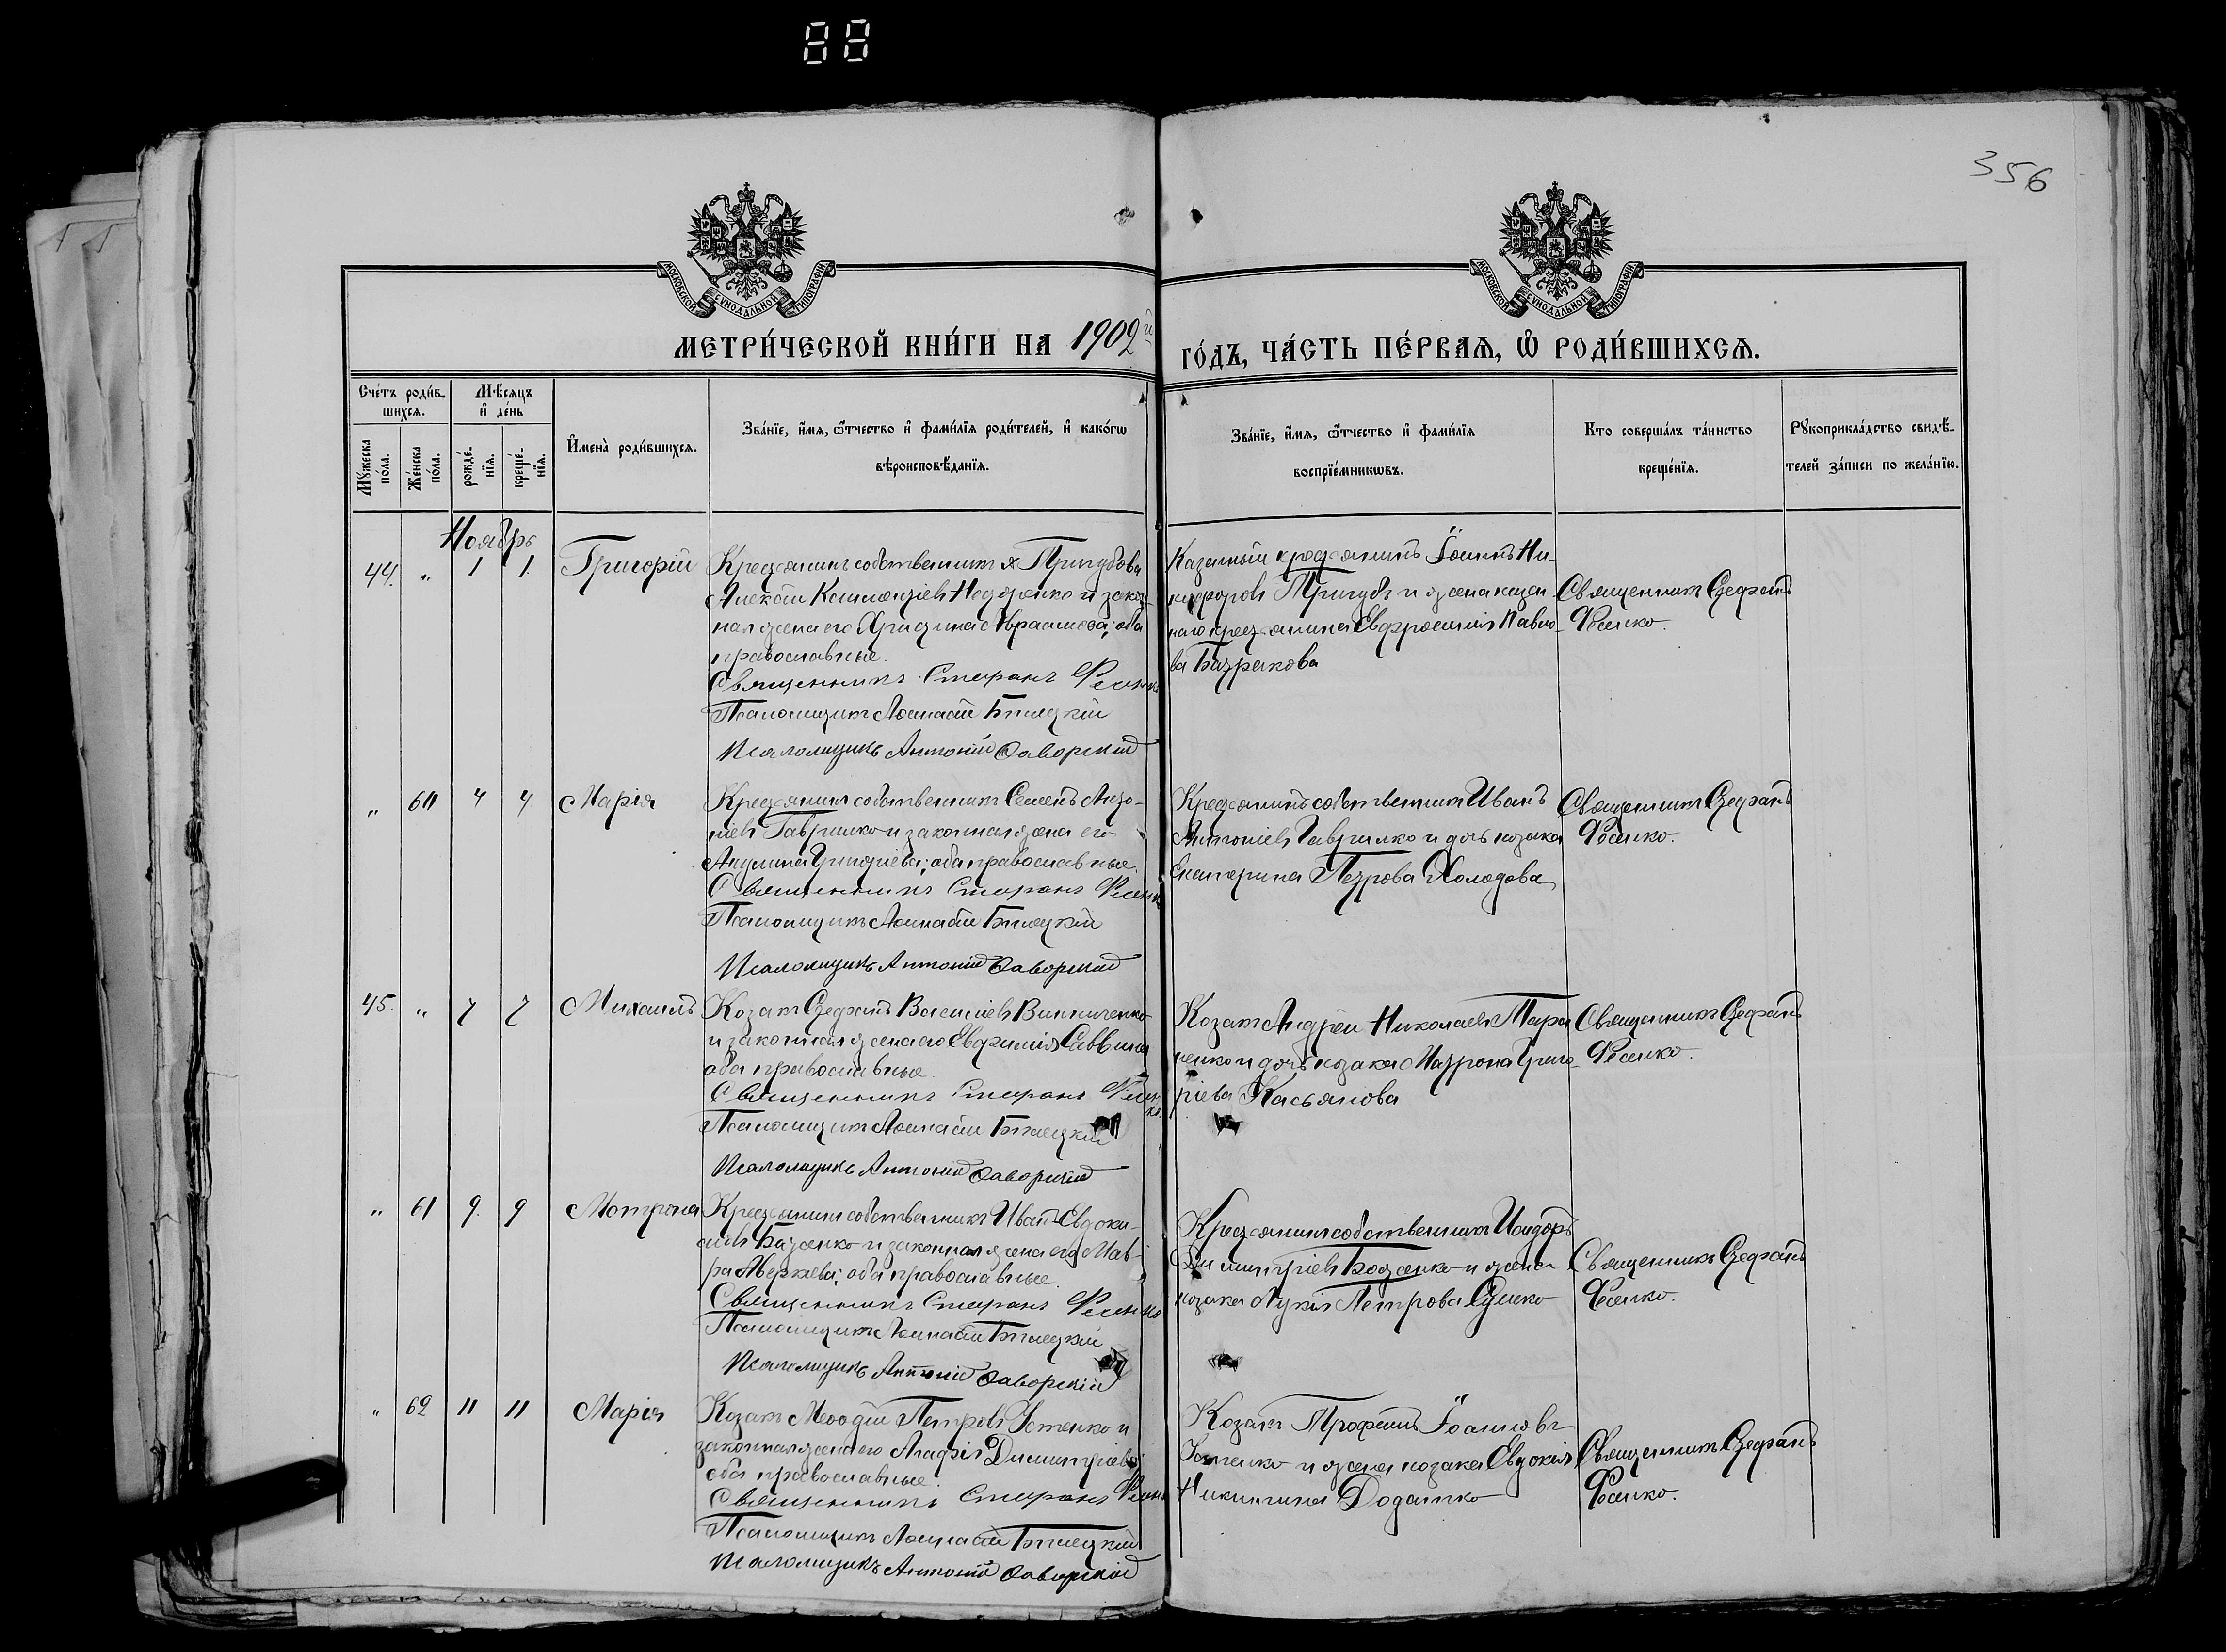 88
356
МОСКОВСКОЙ СѴНОДАЛЬНОЙ ТИПОГРАФІИ
МОСКОВСКОЙ СѴНОДАЛЬНОЙ ТИПОГРАФІИ
МЕТРИ́ЧЕСКОЙ КНИ́ГИ НА 1902й ГО́ДЪ, ЧА́СТЬ ПЕ́РВАѦ, Ѡ҆ РОДИ́ВШИХСѦ.
Сче́тъ роди́в-
шихсѧ.
Мꙋжеска
по́ла.
Же́нска
по́ла.
Мѣ́сѧцъ
и҆ де́нь
рожде́-
нїѧ.
креще́-
нїѧ.
И҆мена̀ роди́вшихсѧ.
Зва́нїе, и҆́мѧ, ѻ҆́тчество и҆ фами́лїѧ роди́телей, и҆ како́гѡ
вѣроисповѣ́данїѧ.
Зва́нїе, и҆́мѧ, ѻ҆́тчество и҆ фами́лїѧ
воспрїе́мникѡвъ.
Кто соверша́лъ та́инство
креще́нїѧ.
Рꙋкоприкла́дство свидѣ́-
телей за́писи по жела́нїю.
Ноябрь
44. " 1 1. Григорій
Крестьянинъ собственникъ х Тригубова
Алексѣй Недоренко и закон-
ная жена его Христина Авраамова; оба
православные.
Священникъ Стефанъ Фесенко
Псаломщикъ Аѳанасій Бѣлецкій
Псаломщикъ Антоній Яворскій
Казенный крестьянинъ Іоаннъ Ни-
кифоровъ Тригубъ и жена казен-
наго крестьянина Евфросинія Павло-
ва
Священникъ Стефанъ
Фесенко.
" 60 4 4 Марія
Крестьянинъ собственникъ Семенъ Анто-
ніевъ Гаврилко и законная жена его
Акулина Григоріева; оба православные.
Священникъ Стефанъ Фесенко
Псаломщикъ Аѳанасій Бѣлецкій
Псаломщикъ Антоній Яворскій
Крестьянинъ собственникъ Иванъ
Антоніевъ Гаврилко и дочь козака
Екатерина Петрова Холодова
Священникъ Стефанъ
Фесенко.
45. " 7 7 Михаилъ
Козакъ Стефанъ Васильевъ Винниченко
и законная жена его Евфимія Саввина
оба православные.
Священникъ Стефанъ Фесенко
Псаломщикъ Аѳанасій Бѣлецкій
Псаломщикъ Антоній Яворскій
Козакъ Андрей Николаевъ Тара
ненко и дочь козака Матрона Григо-
ріева Касьянова
Священникъ Стефанъ
Фесенко.
" 61 9. 9 Мотрона
Крестьянинъ собственникъ Иванъ Евдоки-
мовъ Баженко и законная жена его Мав-
ра Аверкіева; оба православные.
Священникъ Стефанъ Фесенко
Псаломщикъ Аѳанасій Бѣлецкій
Псаломщикъ Антоній Яворскій
Крестьянинъ собственникъ Исидоръ
Димитріевъ Боженко и жена
козака Лукія Петрова
Священникъ Стефанъ
Фесенко.
" 62 11 11 Марія
Козакъ Меѳодій Петровъ Устенко и
законная жена его Агафія Димитріева;
оба православные.
Священникъ Стефанъ Фесенко
Псаломщикъ Аѳанасій Бѣлецкій
Псаломщикъ Антоній Яворскій
Козакъ Трофимъ Іоанновъ
Устенко и жена козака Евдокія
Никитина
Священникъ Стефанъ
Фесенко.